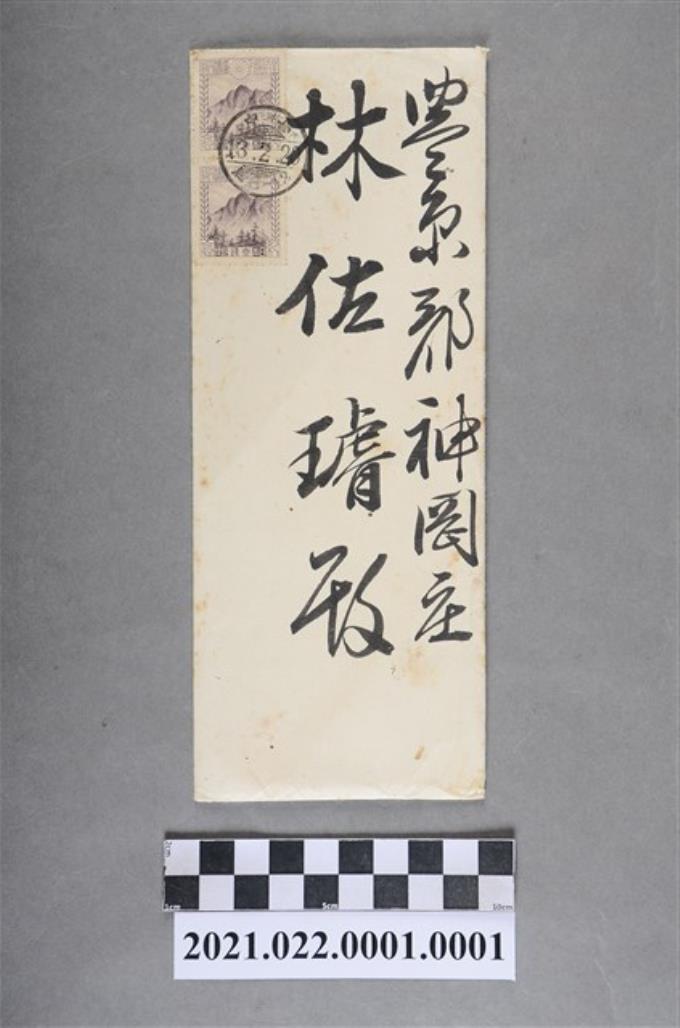 豊原郡神岡庄
林佐璿殿
13.2.2
2cm
1cm
5cm
10cm
2021.022.0001.0001